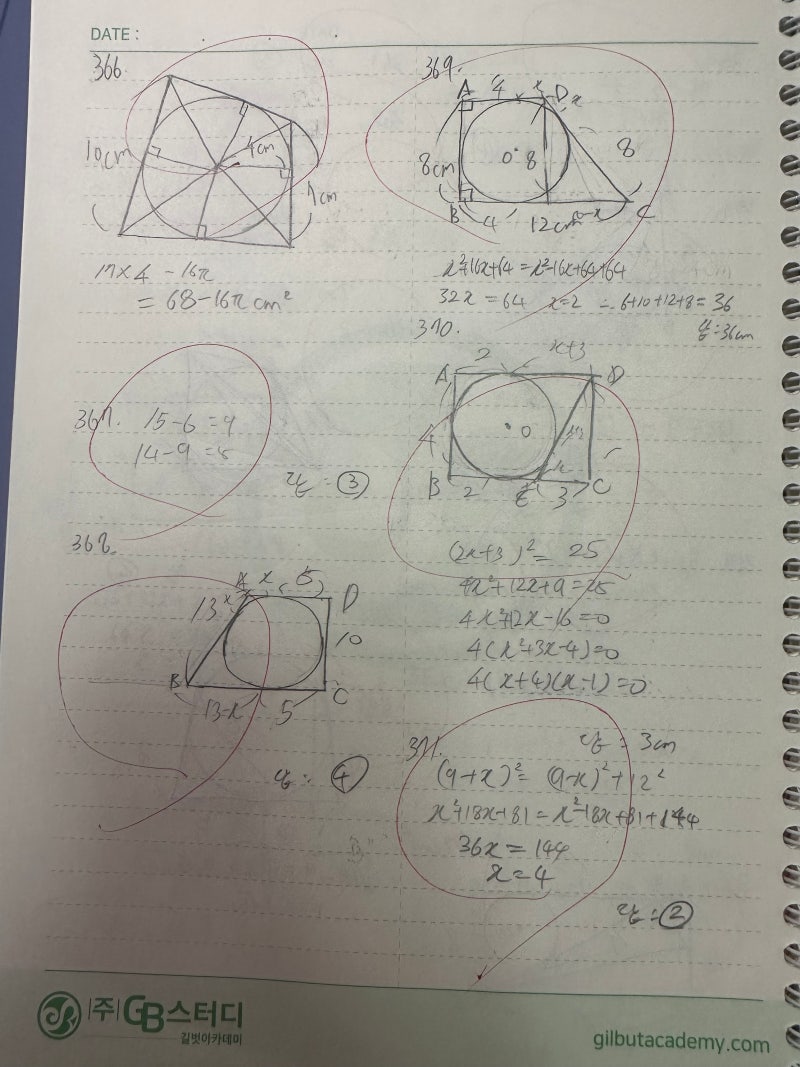 DATE :
366.
10cm
4cm
7cm
17×4 - 16π
= 68-16π cm²
367. 15-6 = 9
14-9 = 5
답 : ③
368.
A x 5 D
13 x
10
B C
13-x 5
답 : ④
369.
A 4 x D x
8cm O 8 8
B 4 12cm C
x²+16x+64 = x²-16x+64+64
32x = 64 x=2 6+10+12+8 = 36
답 : 36cm
370.
2 x+3
A D
4 O
B 2 E 3 C
(2x+3)² = 25
4x²+12x+9 = 25
4x²+12x-16 = 0
4(x²+3x-4)=0
4(x+4)(x-1)=0
답 = 3cm
371.
(9+x)² = (9-x)²+12²
x²+18x+81 = x²-18x+81+144
36x = 144
x = 4
답 : ②
(주)GB스터디
길벗아카데미
gilbutacademy.com